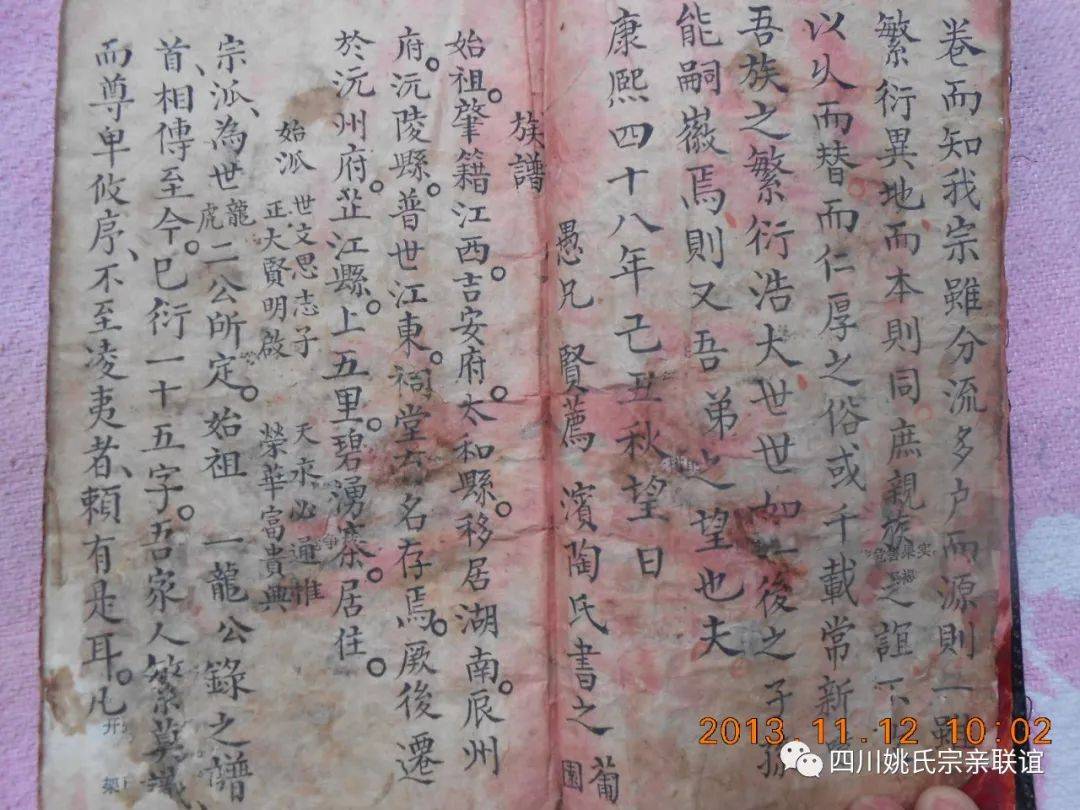 卷而知我宗雖分流多户而源則一雖
繁衍異地而本則同庶親族之誼不
以久而替而仁厚之俗或千載常新
吾族之繁衍浩大世世如一後之子孫
能嗣徽焉則又吾弟之望也夫
康熙四十八年己丑秋望日
愚兄 賢薦 濱陶氏書之葡園
族譜
始祖。肇籍江西。吉安府。太和縣。移居湖南。辰州
府。沅陵縣。普世江東。祠堂名存焉。厥後遷
於沅州府。芷江縣。上五里碧湧寨。居住。
始派 世文思志子 天永必通惟
正大賢明啟 榮華富貴典
宗派、為世龍虎二公所定。始祖 一龍公錄之譜
首、相傳至今。已衍一十五字。吾家人繁
而尊卑攸序、不至凌夷者、賴有是耳。凡
2013.11.12 10:02
四川姚氏宗亲联谊